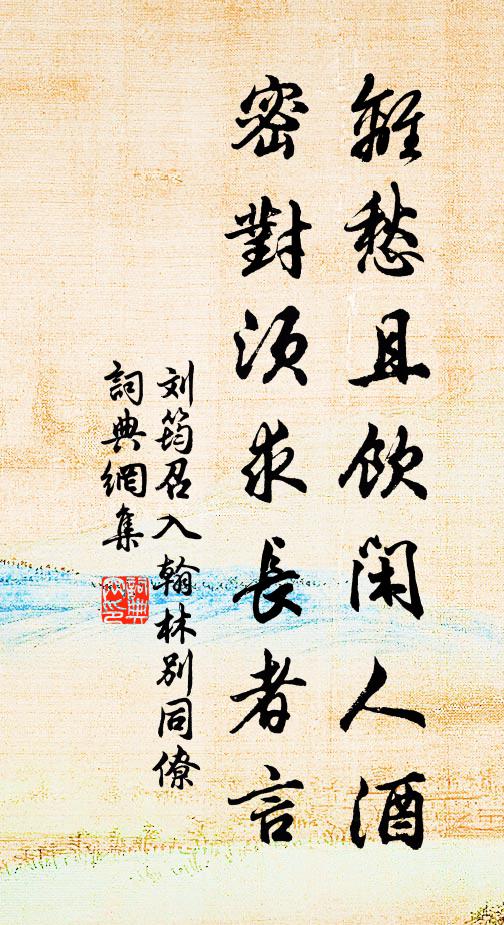 離愁且饮闲人酒
密對须求長者言
刘筠召入翰林别同僚
詞典網集